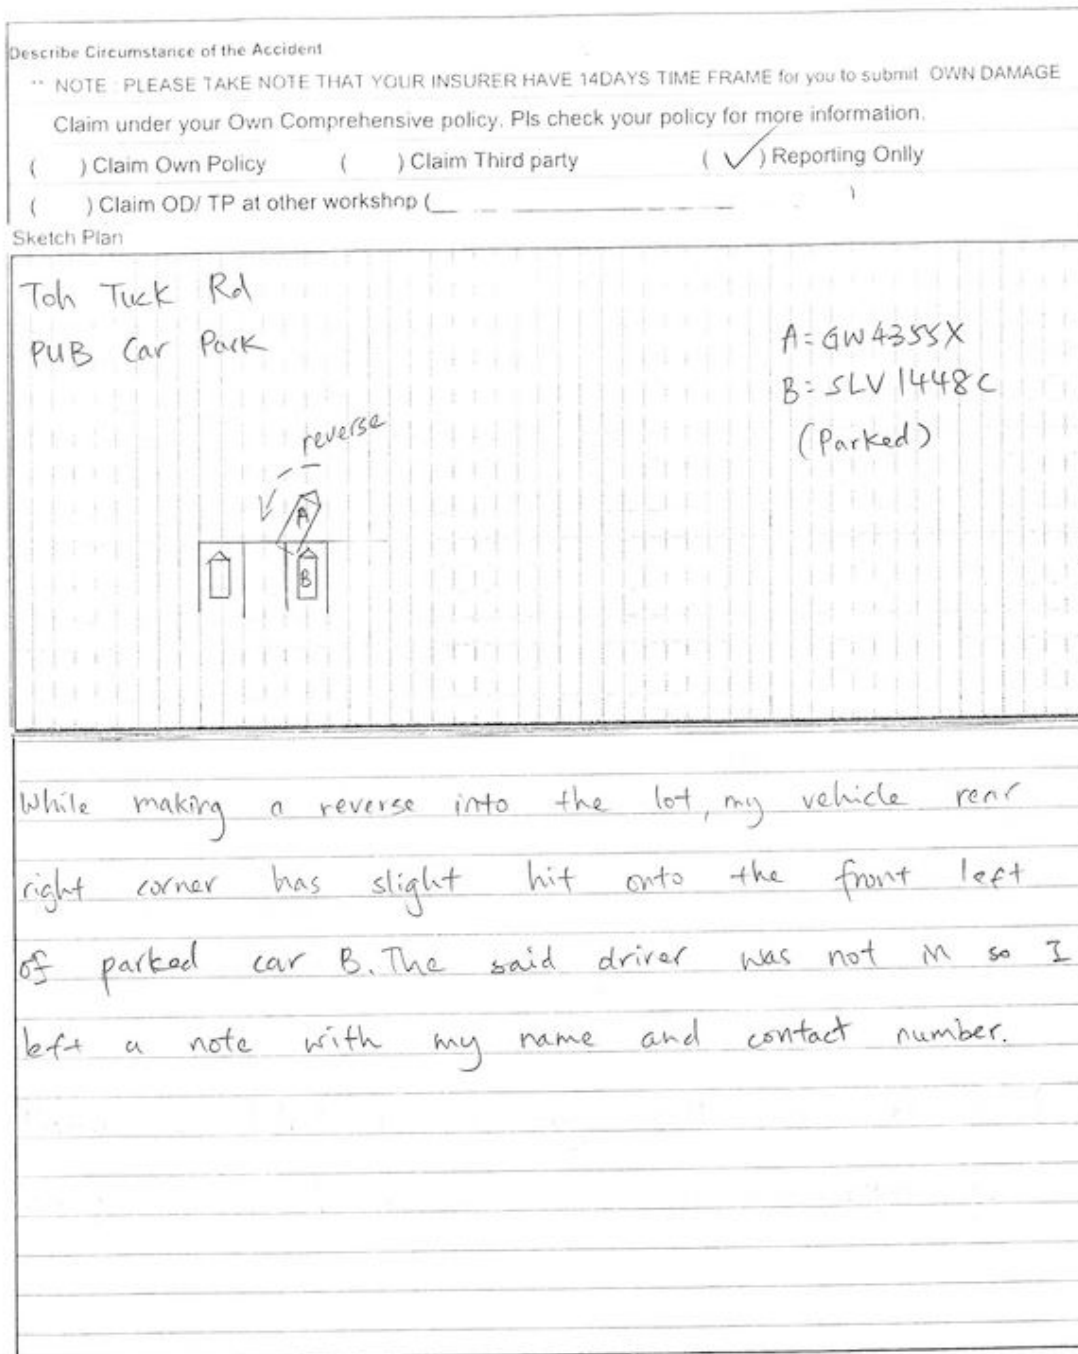 Describe Circumstance of the Accident
** NOTE : PLEASE TAKE NOTE THAT YOUR INSURER HAVE 14DAYS TIME FRAME for you to submit OWN DAMAGE
Claim under your Own Comprehensive policy. Pls check your policy for more information.
( ) Claim Own Policy ( ) Claim Third party ( ✓ ) Reporting Onlly
( ) Claim OD/ TP at other workshop ( )
Sketch Plan
Toh Tuck Rd
PUB Car Park
A = GW4355X
B = SLV1448C
(Parked)
reverse
A
B
While making a reverse into the lot, my vehicle rear
right corner has slight hit onto the front left
of parked car B. The said driver was not in so I
left a note with my name and contact number.